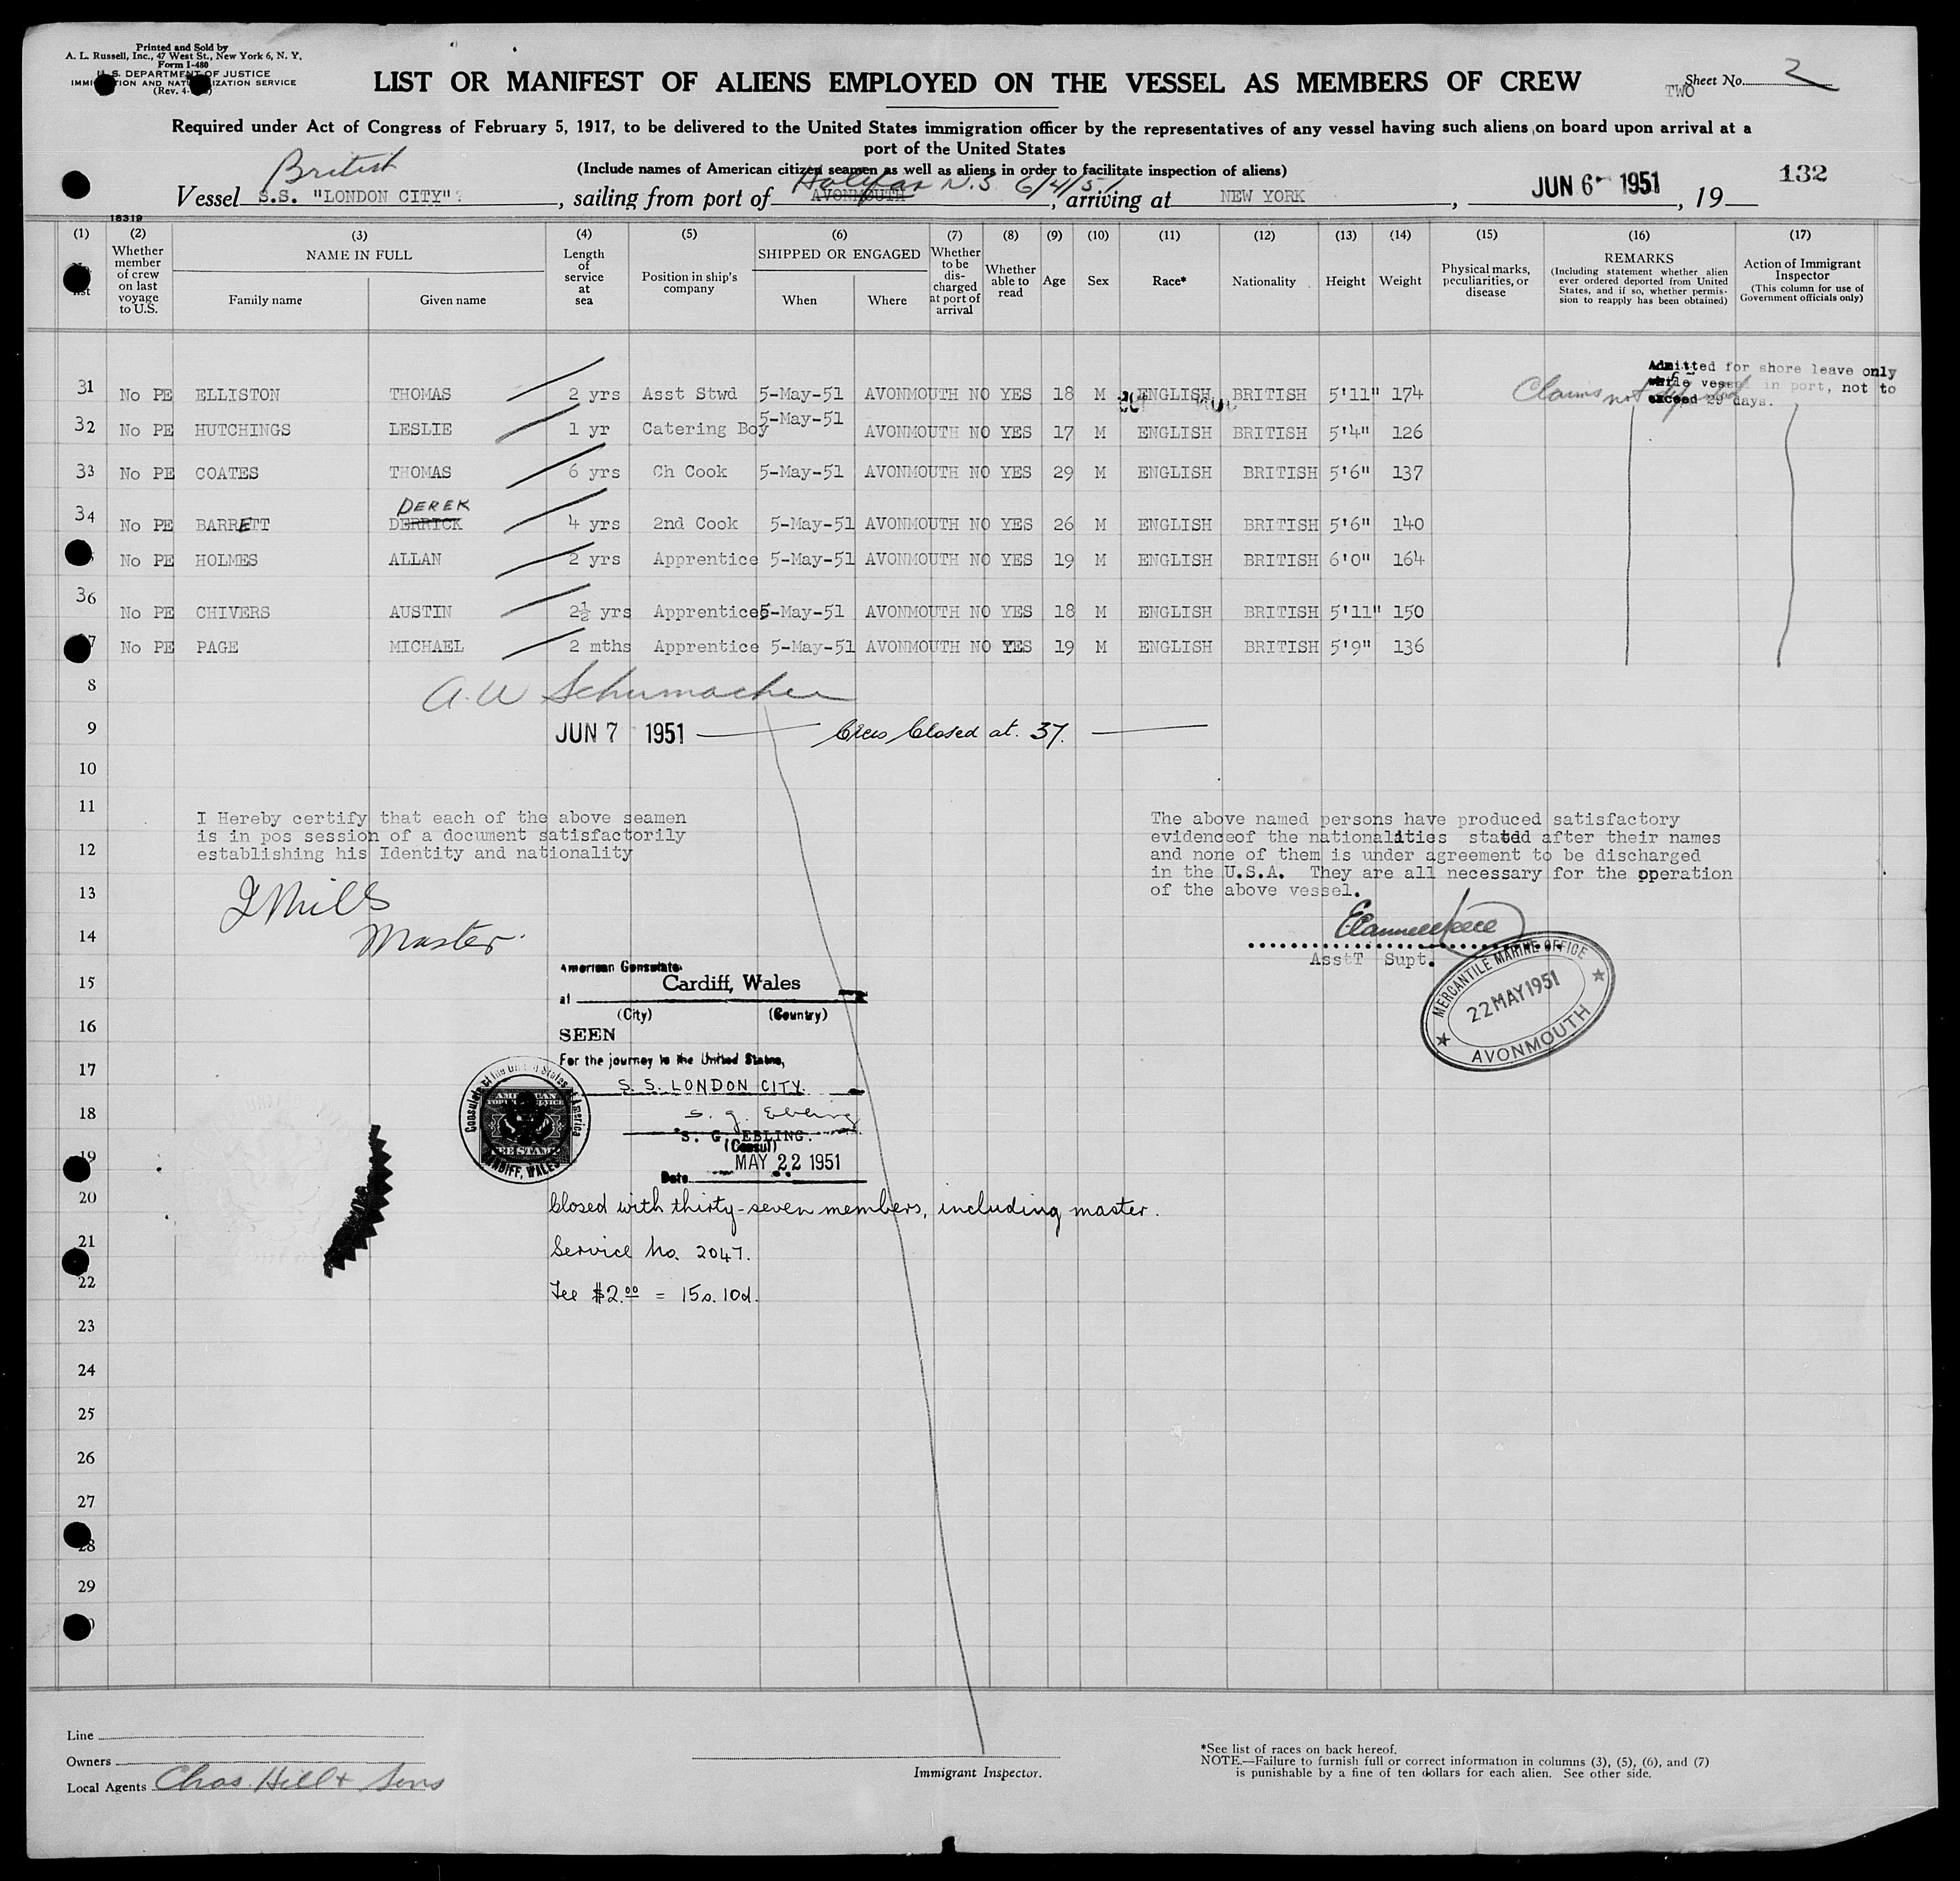 Printed and Sold by
A. L. Russell, Inc., 47 West St., New York 6, N. Y.
Form I-480
U. S. DEPARTMENT OF JUSTICE
IMMIGRATION AND NATURALIZATION SERVICE
(Rev. 4-
LIST OR MANIFEST OF ALIENS EMPLOYED ON THE VESSEL AS MEMBERS OF CREW
Sheet No. 2
TWO
Required under Act of Congress of February 5, 1917, to be delivered to the United States immigration officer by the representatives of any vessel having such aliens on board upon arrival at a
port of the United States
(Include names of American citizen seamen as well as aliens in order to facilitate inspection of aliens)
132
British
Halifax N.S 6/4/51
Vessel S.S. "LONDON CITY", sailing from port of AVONMOUTH, arriving at NEW YORK, JUN 6 - 1951, 19
18319
(1) (2) (3) (4) (5) (6) (7) (8) (9) (10) (11) (12) (13) (14) (15) (16) (17)
list
Whether member of crew on last voyage to U.S.
NAME IN FULL
Family name
Given name
Length of service at sea
Position in ship's company
SHIPPED OR ENGAGED
When
Where
Whether to be discharged at port of arrival
Whether able to read
Age
Sex
Race*
Nationality
Height
Weight
Physical marks, peculiarities, or disease
REMARKS
(Including statement whether alien ever ordered deported from United States, and if so, whether permission to reapply has been obtained)
Action of Immigrant Inspector
(This column for use of Government officials only)
Admitted for shore leave only
while vessel in port, not to
exceed 29 days.
Claims not
31 No PE ELLISTON THOMAS 2 yrs Asst Stwd 5-May-51 AVONMOUTH NO YES 18 M ENGLISH BRITISH 5'11" 174
32 No PE HUTCHINGS LESLIE 1 yr Catering Boy 5-May-51 AVONMOUTH NO YES 17 M ENGLISH BRITISH 5'4" 126
33 No PE COATES THOMAS 6 yrs Ch Cook 5-May-51 AVONMOUTH NO YES 29 M ENGLISH BRITISH 5'6" 137
DEREK
34 No PE BARRETT DERRICK 4 yrs 2nd Cook 5-May-51 AVONMOUTH NO YES 26 M ENGLISH BRITISH 5'6" 140
No PE HOLMES ALLAN 2 yrs Apprentice 5-May-51 AVONMOUTH NO YES 19 M ENGLISH BRITISH 6'0" 164
36 No PE CHIVERS AUSTIN 2½ yrs Apprentice 5-May-51 AVONMOUTH NO YES 18 M ENGLISH BRITISH 5'11" 150
7 No PE PAGE MICHAEL 2 mths Apprentice 5-May-51 AVONMOUTH NO YES 19 M ENGLISH BRITISH 5'9" 136
8
A. W Schumacher
9
JUN 7 1951 — Crew Closed at. 37. —
10
11
12
13
14
I Hereby certify that each of the above seamen
is in pos session of a document satisfactorily
establishing his Identity and nationality
Mills
Master.
The above named persons have produced satisfactory
evidenceof the nationalities stated after their names
and none of them is under agreement to be discharged
in the U.S.A. They are all necessary for the operation
of the above vessel.
AsstT Supt.
MERCANTILE MARINE OFFICE
22 MAY 1951
AVONMOUTH
15
16
17
18
19
American Consulate
at Cardiff, Wales
(City) (Country)
SEEN
For the journey to the United States,
S. S. LONDON CITY.
S. G. Ebling
S. G. EBLING.
(Consul)
Date MAY 22 1951
Consulate of the United States of America
AMERICAN
FOREIGN SERVICE
FEE STAMP
CARDIFF, WALES
20
Closed with thirty-seven members, including master.
21
Service No. 2047.
22
Fee $2.00 = 15s. 10d.
23
24
25
26
27
28
29
Line
Owners
Local Agents Chas. Hill & Sons
Immigrant Inspector.
*See list of races on back hereof.
NOTE.—Failure to furnish full or correct information in columns (3), (5), (6), and (7)
is punishable by a fine of ten dollars for each alien. See other side.